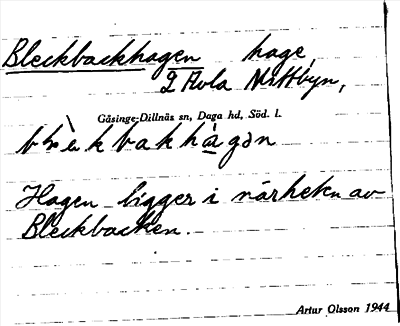 Bleckbackhagen hage,
Nättbyn,
Gåsinge-Dillnäs sn, Daga hd, Söd. l.
Hagen ligger i närheten av
Bleckbacken.
Artur Olsson 1944